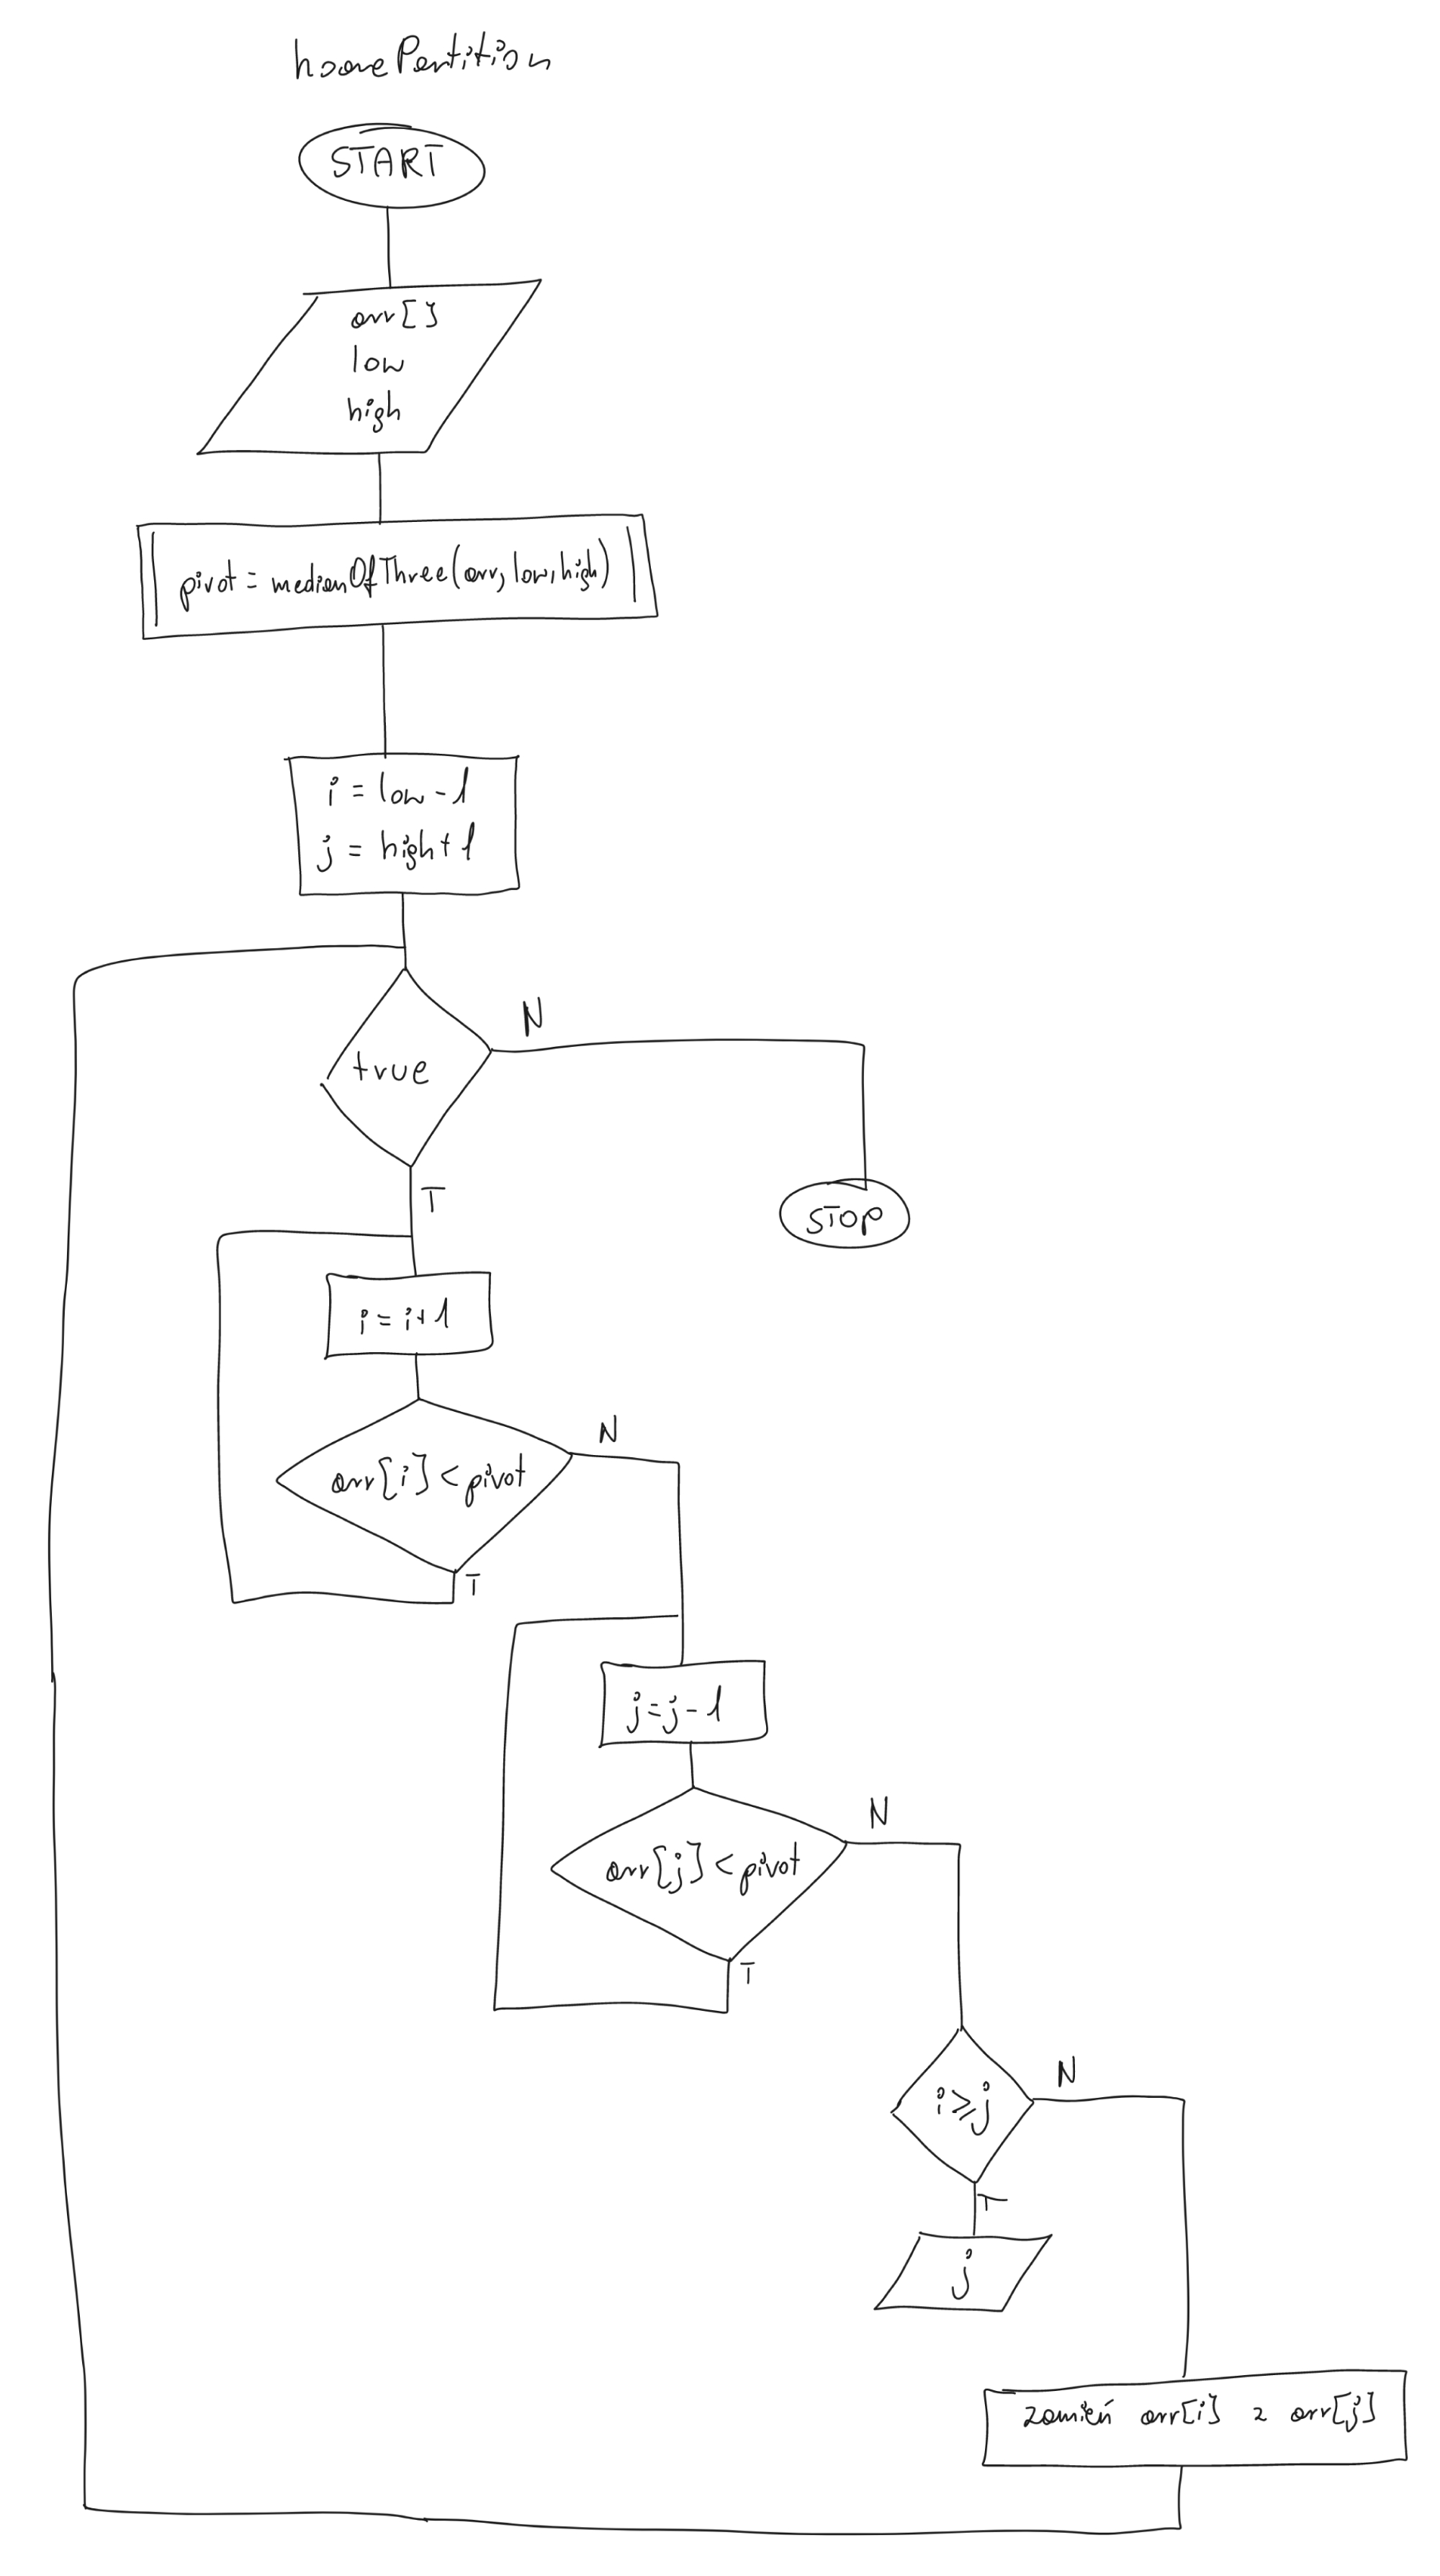 hoarePartition
START
arr[]
low
high
pivot = medianOfThree(arr, low, high)
i = low - 1
j = high + 1
true
N
T
STOP
i = i + 1
arr[i] < pivot
N
T
j = j - 1
arr[j] < pivot
N
T
i ≥ j
N
T
j
zamień arr[i] z arr[j]